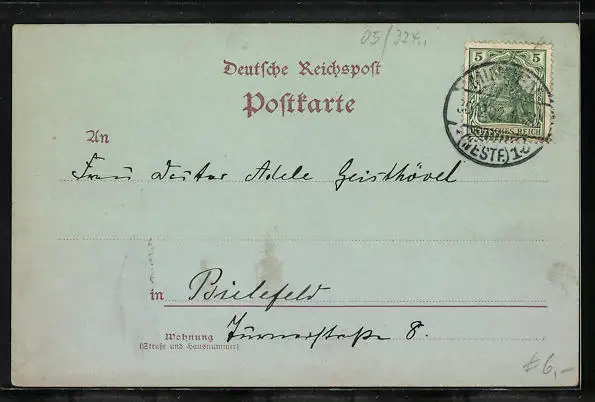 05/324.,
Deutsche Reichspost
Postkarte
5 5
DEUTSCHES REICH
(WESTF.) 1
An
Frau Doktor Adele Geisthövel
in Bielefeld
Wohnung Turnerstraße 8.
(Straße und Hausnummer)
€6,-